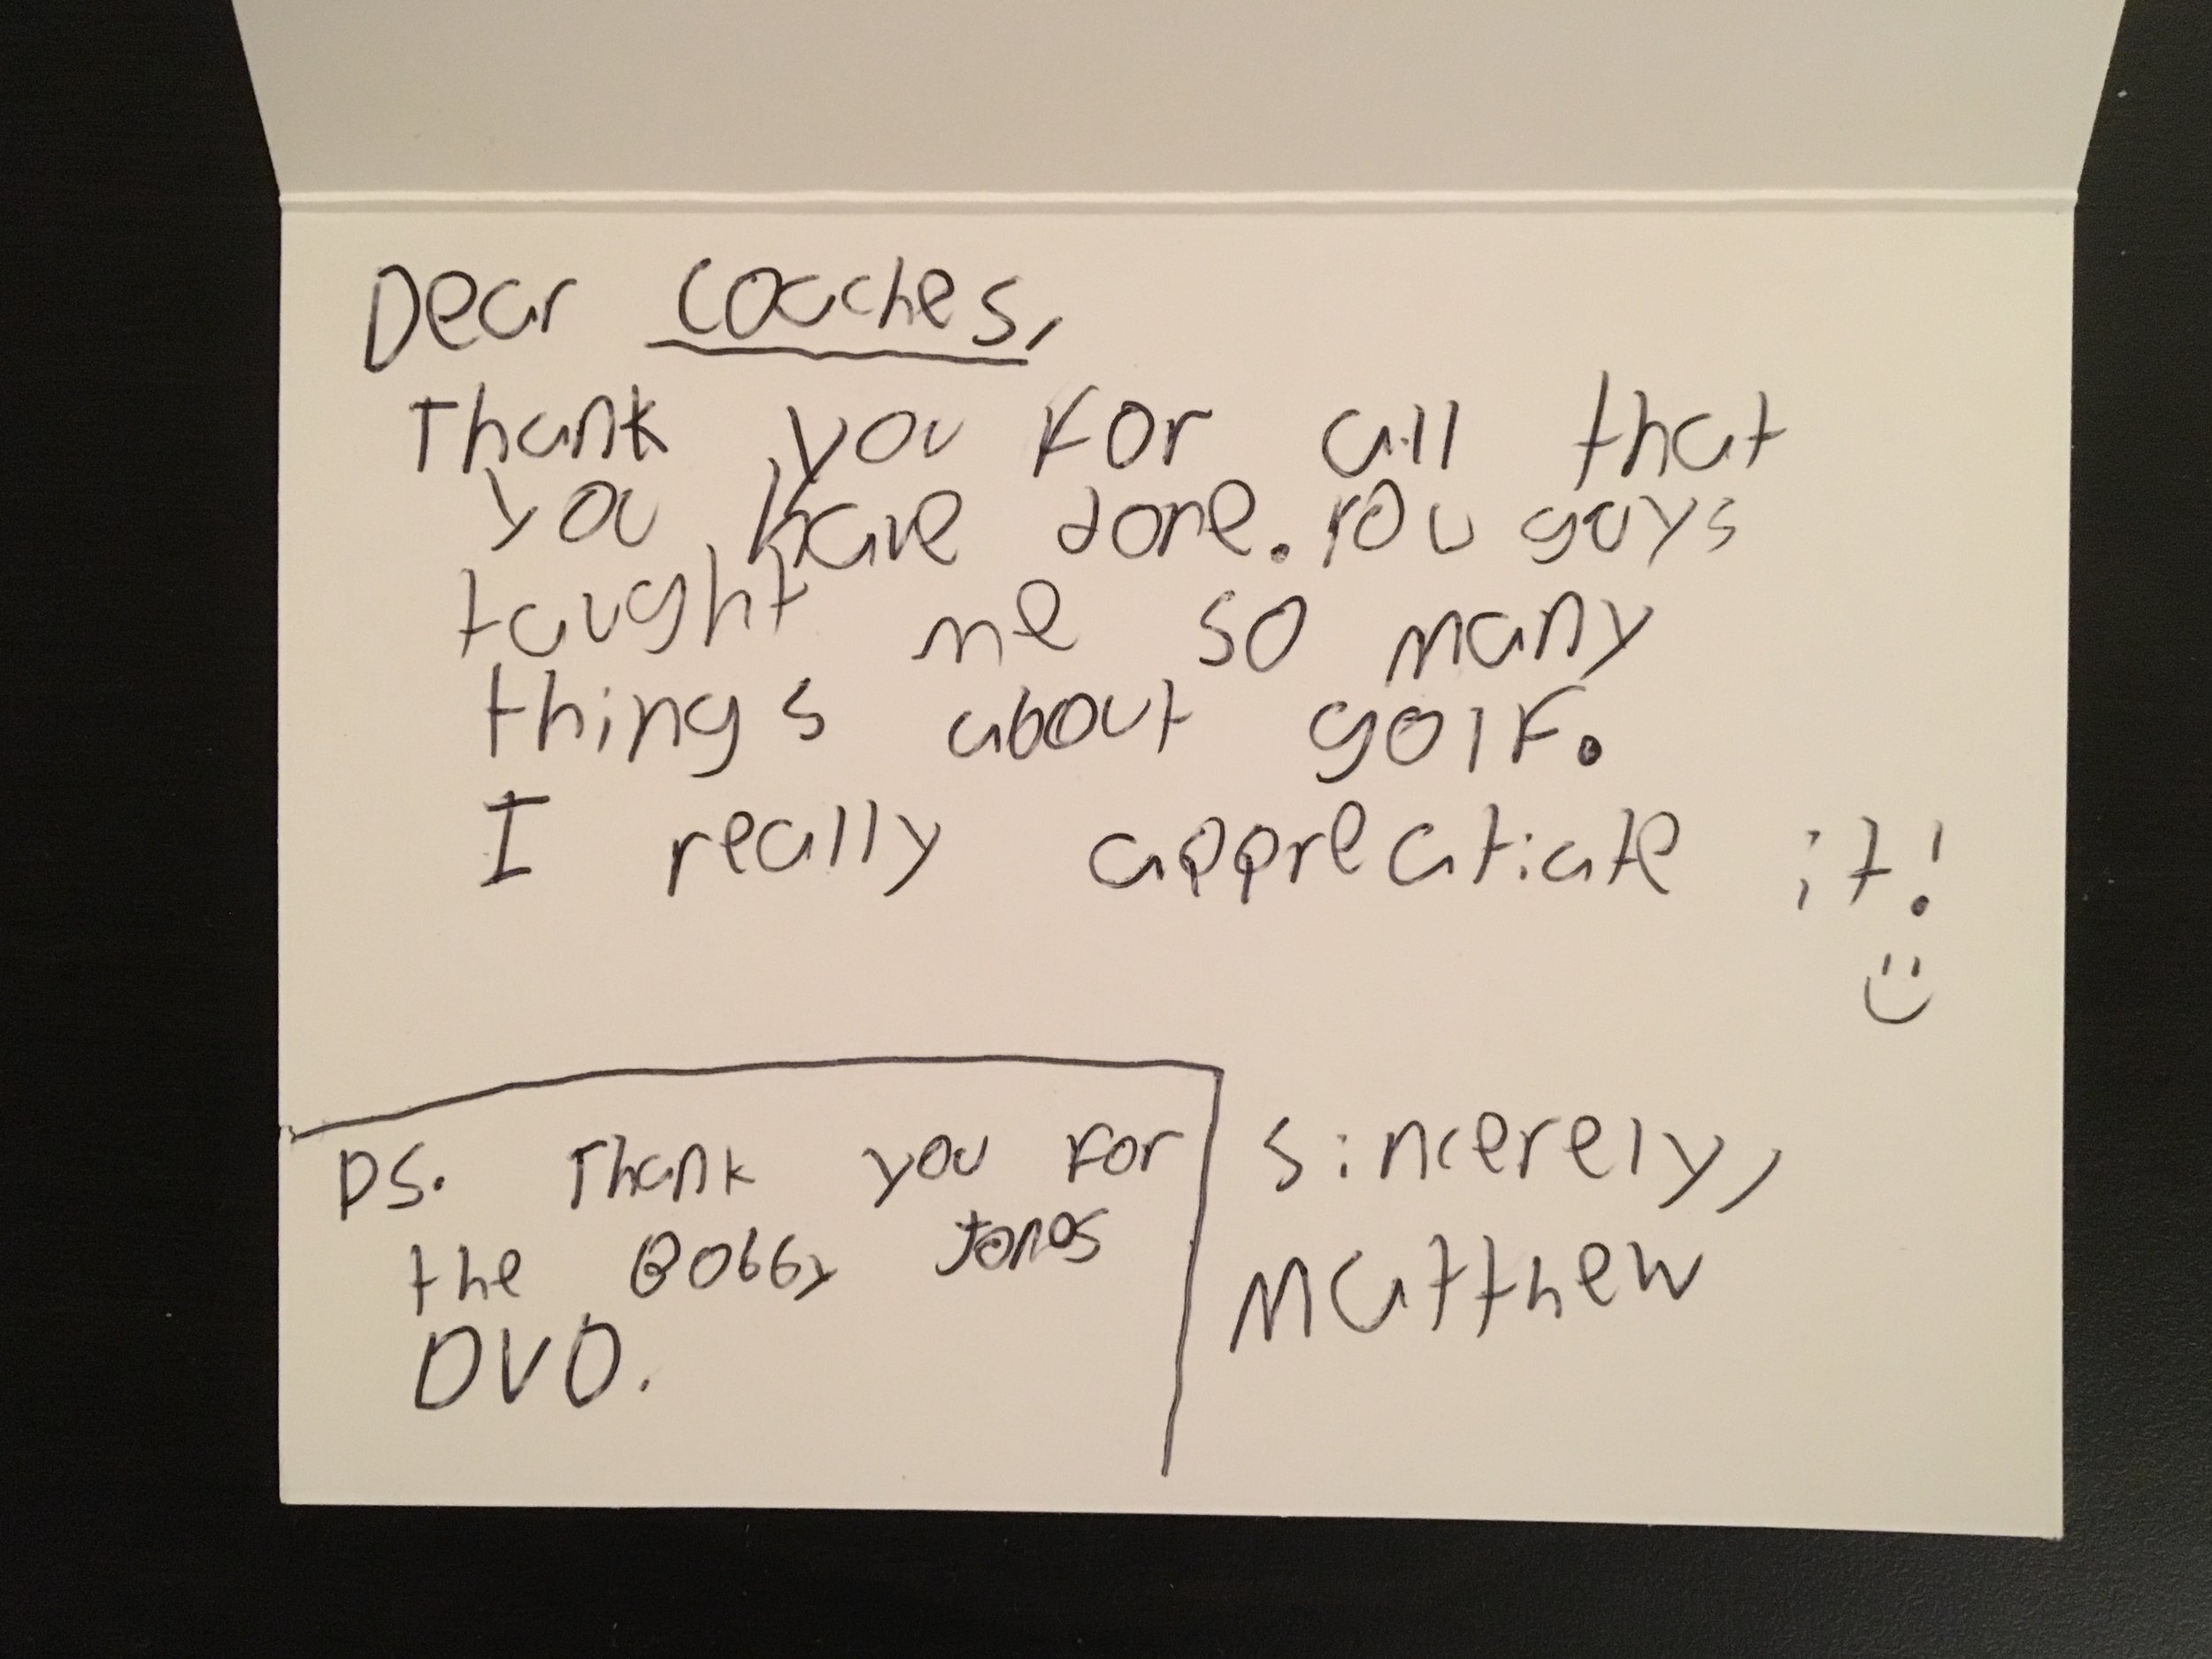 Dear Coaches,
Thank you for all that
you have done. You guys
taught me so many
things about golf.
I really appreatiate it!
Sincerely,
Matthew
PS. Thank you for
the Bobby Jones
DVD.